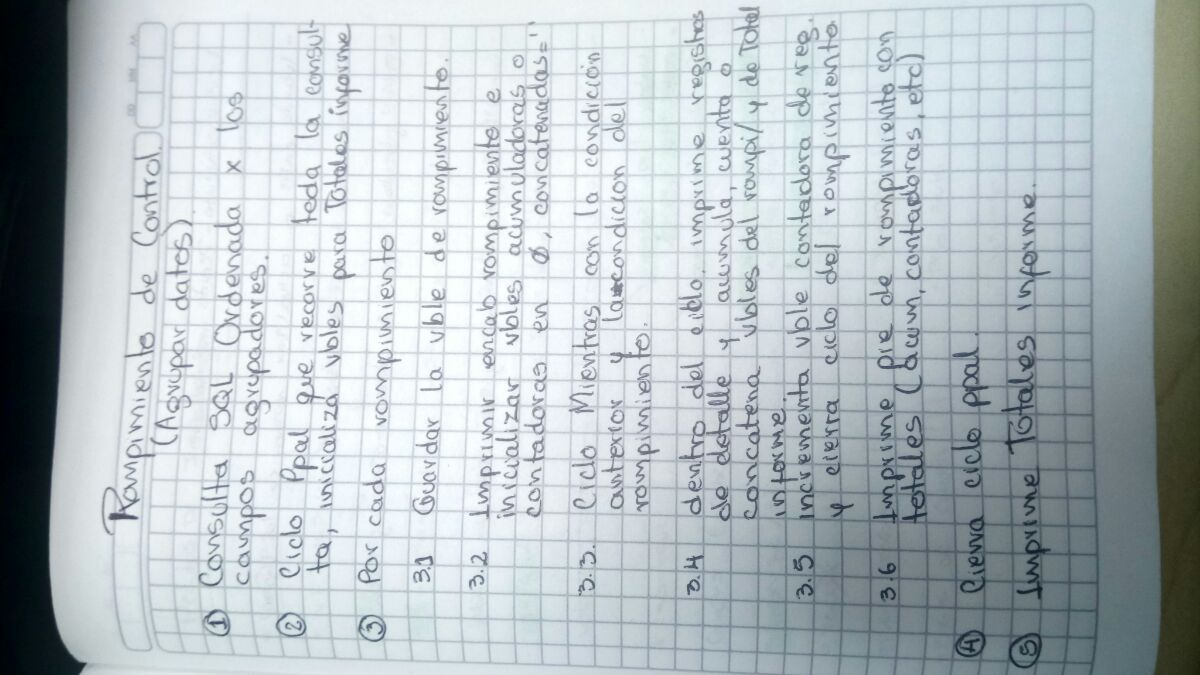 Rompimiento de Control.
(Agrupar datos)
① Consulta SQL Ordenada x los
campos agrupadores.
② Ciclo Ppal que recorre toda la consul-
ta, inicializa vbles para Totales informe
③ Por cada rompimiento
3.1 Guardar la vble de rompimiento.
3.2 Imprimir encab rompimiento e
inicializar vbles acumuladoras o
contadoras en ∅, concatenadas=''
3.3. Ciclo Mientras con la condición
anterior y la condicion del
rompimiento.
3.4 dentro del ciclo, imprime registros
de detalle y acumula, cuenta o
concatena vbles del rompi/ y de Total
informe.
3.5 incrementa vble contadora de reg.
y cierra ciclo del rompimiento
3.6 Imprime pie de rompimiento con
totales (acum, contadoras, etc)
④ Cierra ciclo ppal.
⑤ Imprime Totales informe.